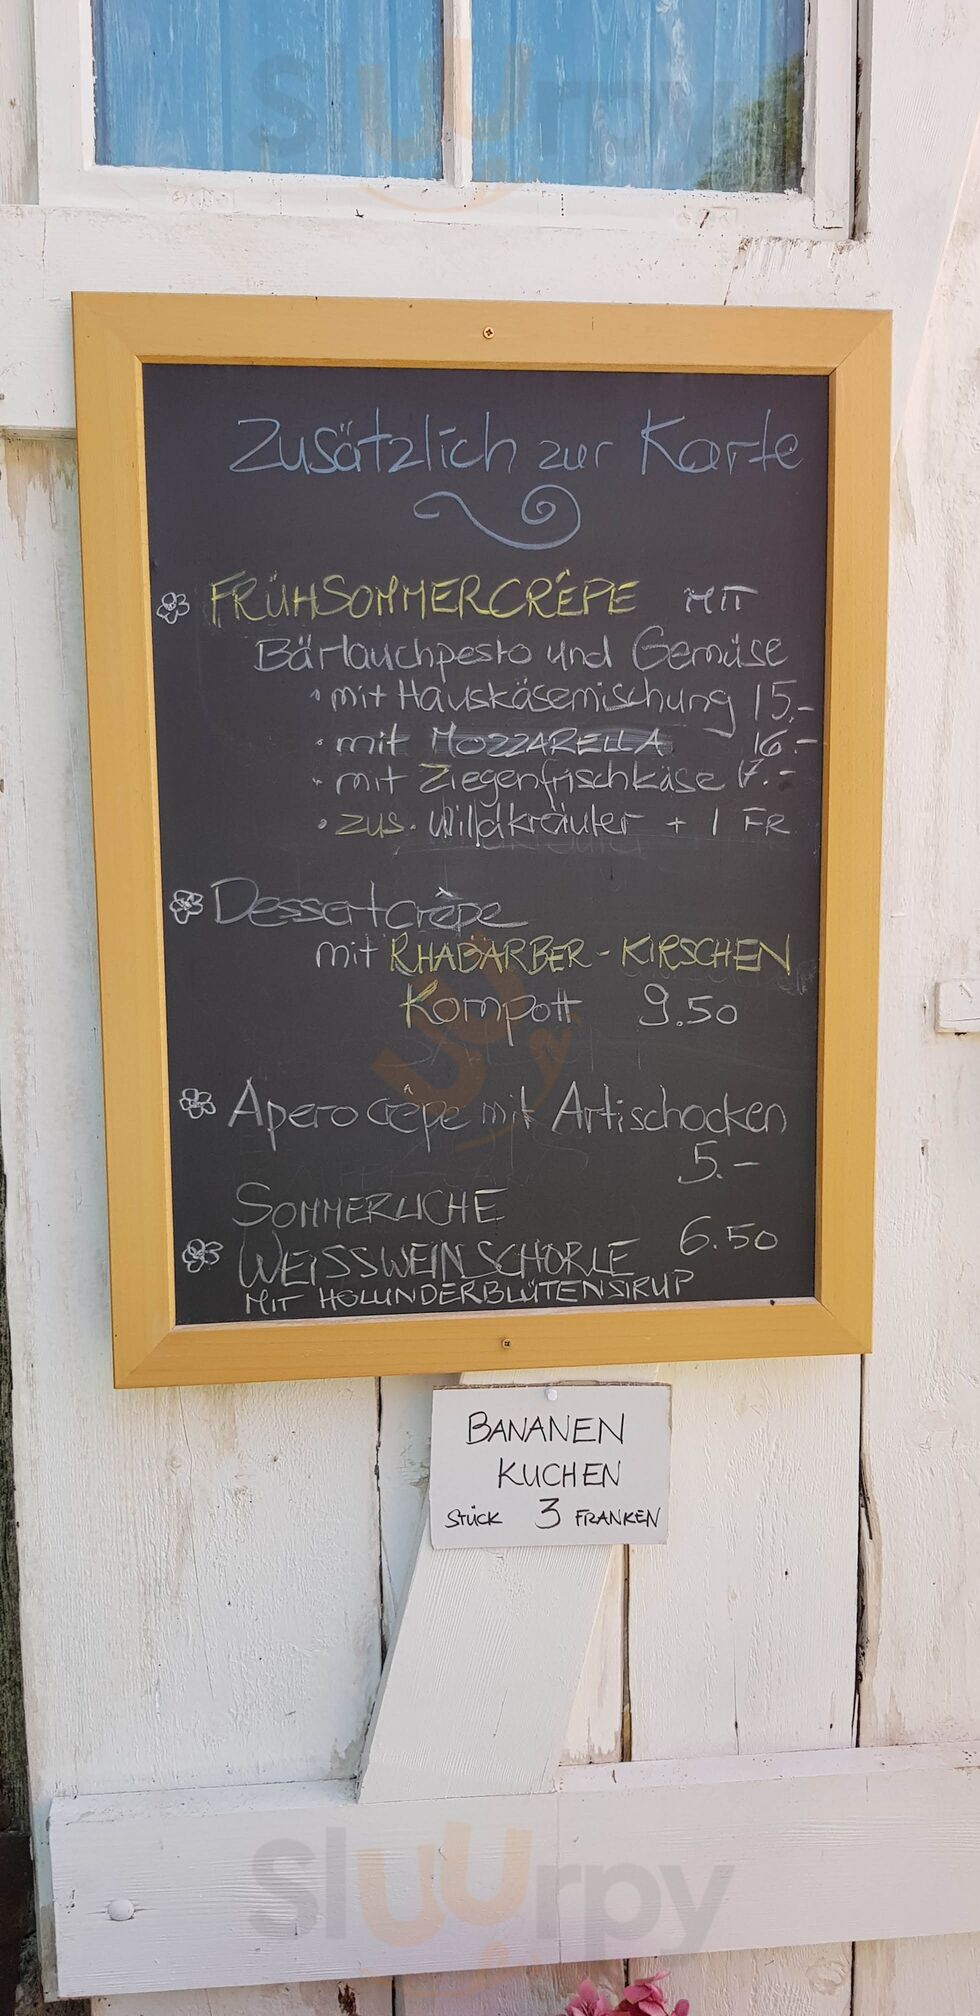 Sluurpy
Zusätzlich zur Karte
FRÜHSOMMERCRÊPE MIT
Bärlauchpesto und Gemüse
· mit Hauskäsemischung 15.-
· mit MOZZARELLA 16.-
· mit Ziegenfrischkäse 17.-
· zus. Wildkräuter + 1 FR
Dessertcrêpe
mit RHABARBER - KIRSCHEN
Kompott 9.50
Apero crêpe mit Artischocken
5.-
SOMMERLICHE
WEISSWEIN SCHORLE 6.50
MIT HOLUNDERBLÜTENSIRUP
BANANEN
KUCHEN
STÜCK 3 FRANKEN
Sluurpy